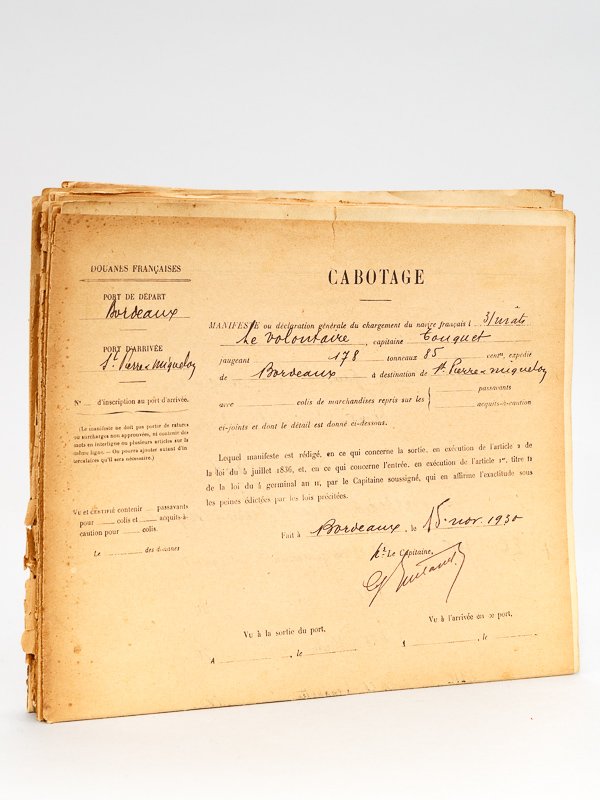 DOUANES FRANÇAISES
PORT DE DÉPART
Bordeaux
PORT D'ARRIVÉE
St Pierre & Miquelon
N° d'inscription au port d'arrivée.
(Le manifeste ne doit pas porter de ratures
ou surcharges non approuvées, ni contenir des
mots en interligne ou plusieurs articles sur la
même ligne. — On pourra ajouter autant d'in-
tercalaires qu'il sera nécessaire.)
VU ET CERTIFIÉ contenir passavants
pour colis et acquits-à-
caution pour colis.
Le des douanes
CABOTAGE
MANIFESTE ou déclaration générale du chargement du navire français l 3/mâts
Le Volontaire, capitaine Touquet
jaugeant 178 tonneaux 85 centes, expédié
de Bordeaux à destination de St Pierre & Miquelon
avec colis de marchandises repris sur les { passavants
acquits-à-caution
ci-joints et dont le détail est donné ci-dessous.
Lequel manifeste est rédigé, en ce qui concerne la sortie, en exécution de l'article 2 de
la loi du 5 juillet 1836, et, en ce qui concerne l'entrée, en exécution de l'article 1er, titre 12
de la loi du 4 germinal an 11, par le Capitaine soussigné, qui en affirme l'exactitude sous
les peines édictées par les lois précitées.
Fait à Bordeaux, le 15 nov. 1930
Le Capitaine,
Vu à la sortie du port,
A , le
Vu à l'arrivée au port,
, le